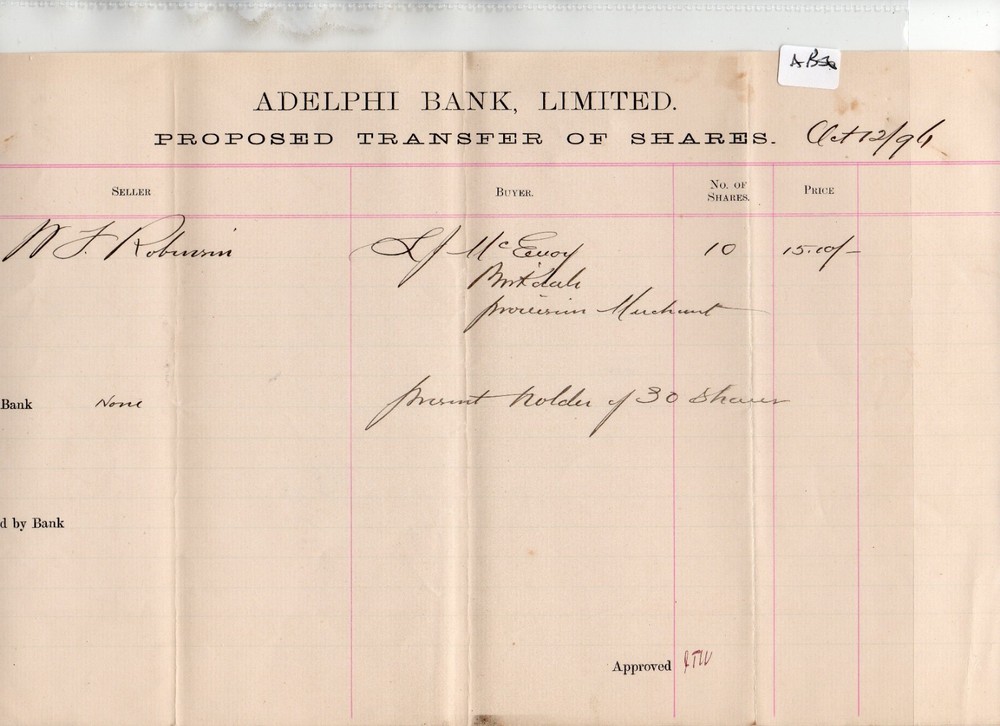 AB30
ADELPHI BANK, LIMITED.
PROPOSED TRANSFER OF SHARES. Oct 12/96
SELLER BUYER. NO. OF SHARES. PRICE
W F Robinson McEvoy 10 15.10/-
Birkdale
provision Merchant
Bank None present holder of 30 Shares
d by Bank
Approved JTW